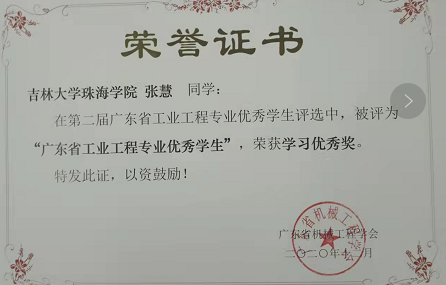 荣誉证书
吉林大学珠海学院 张慧 同学：
在第二届广东省工业工程专业优秀学生评选中，被评为
“广东省工业工程专业优秀学生”，荣获学习优秀奖。
特发此证，以资鼓励！
广东省机械工程学会
二〇二〇年十二月